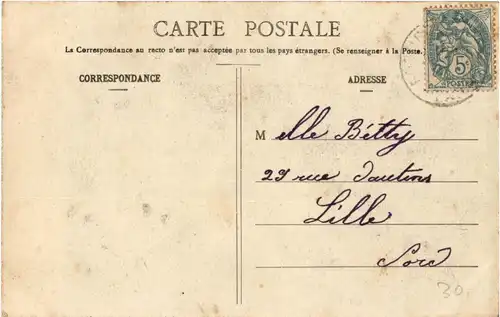 CARTE POSTALE
La Correspondance au recto n'est pas acceptée par tous les pays étrangers. (Se renseigner à la Poste.)
CORRESPONDANCE
ADRESSE
5c
POSTES
Melle Bétty
29 rue
Lille
Nord
30